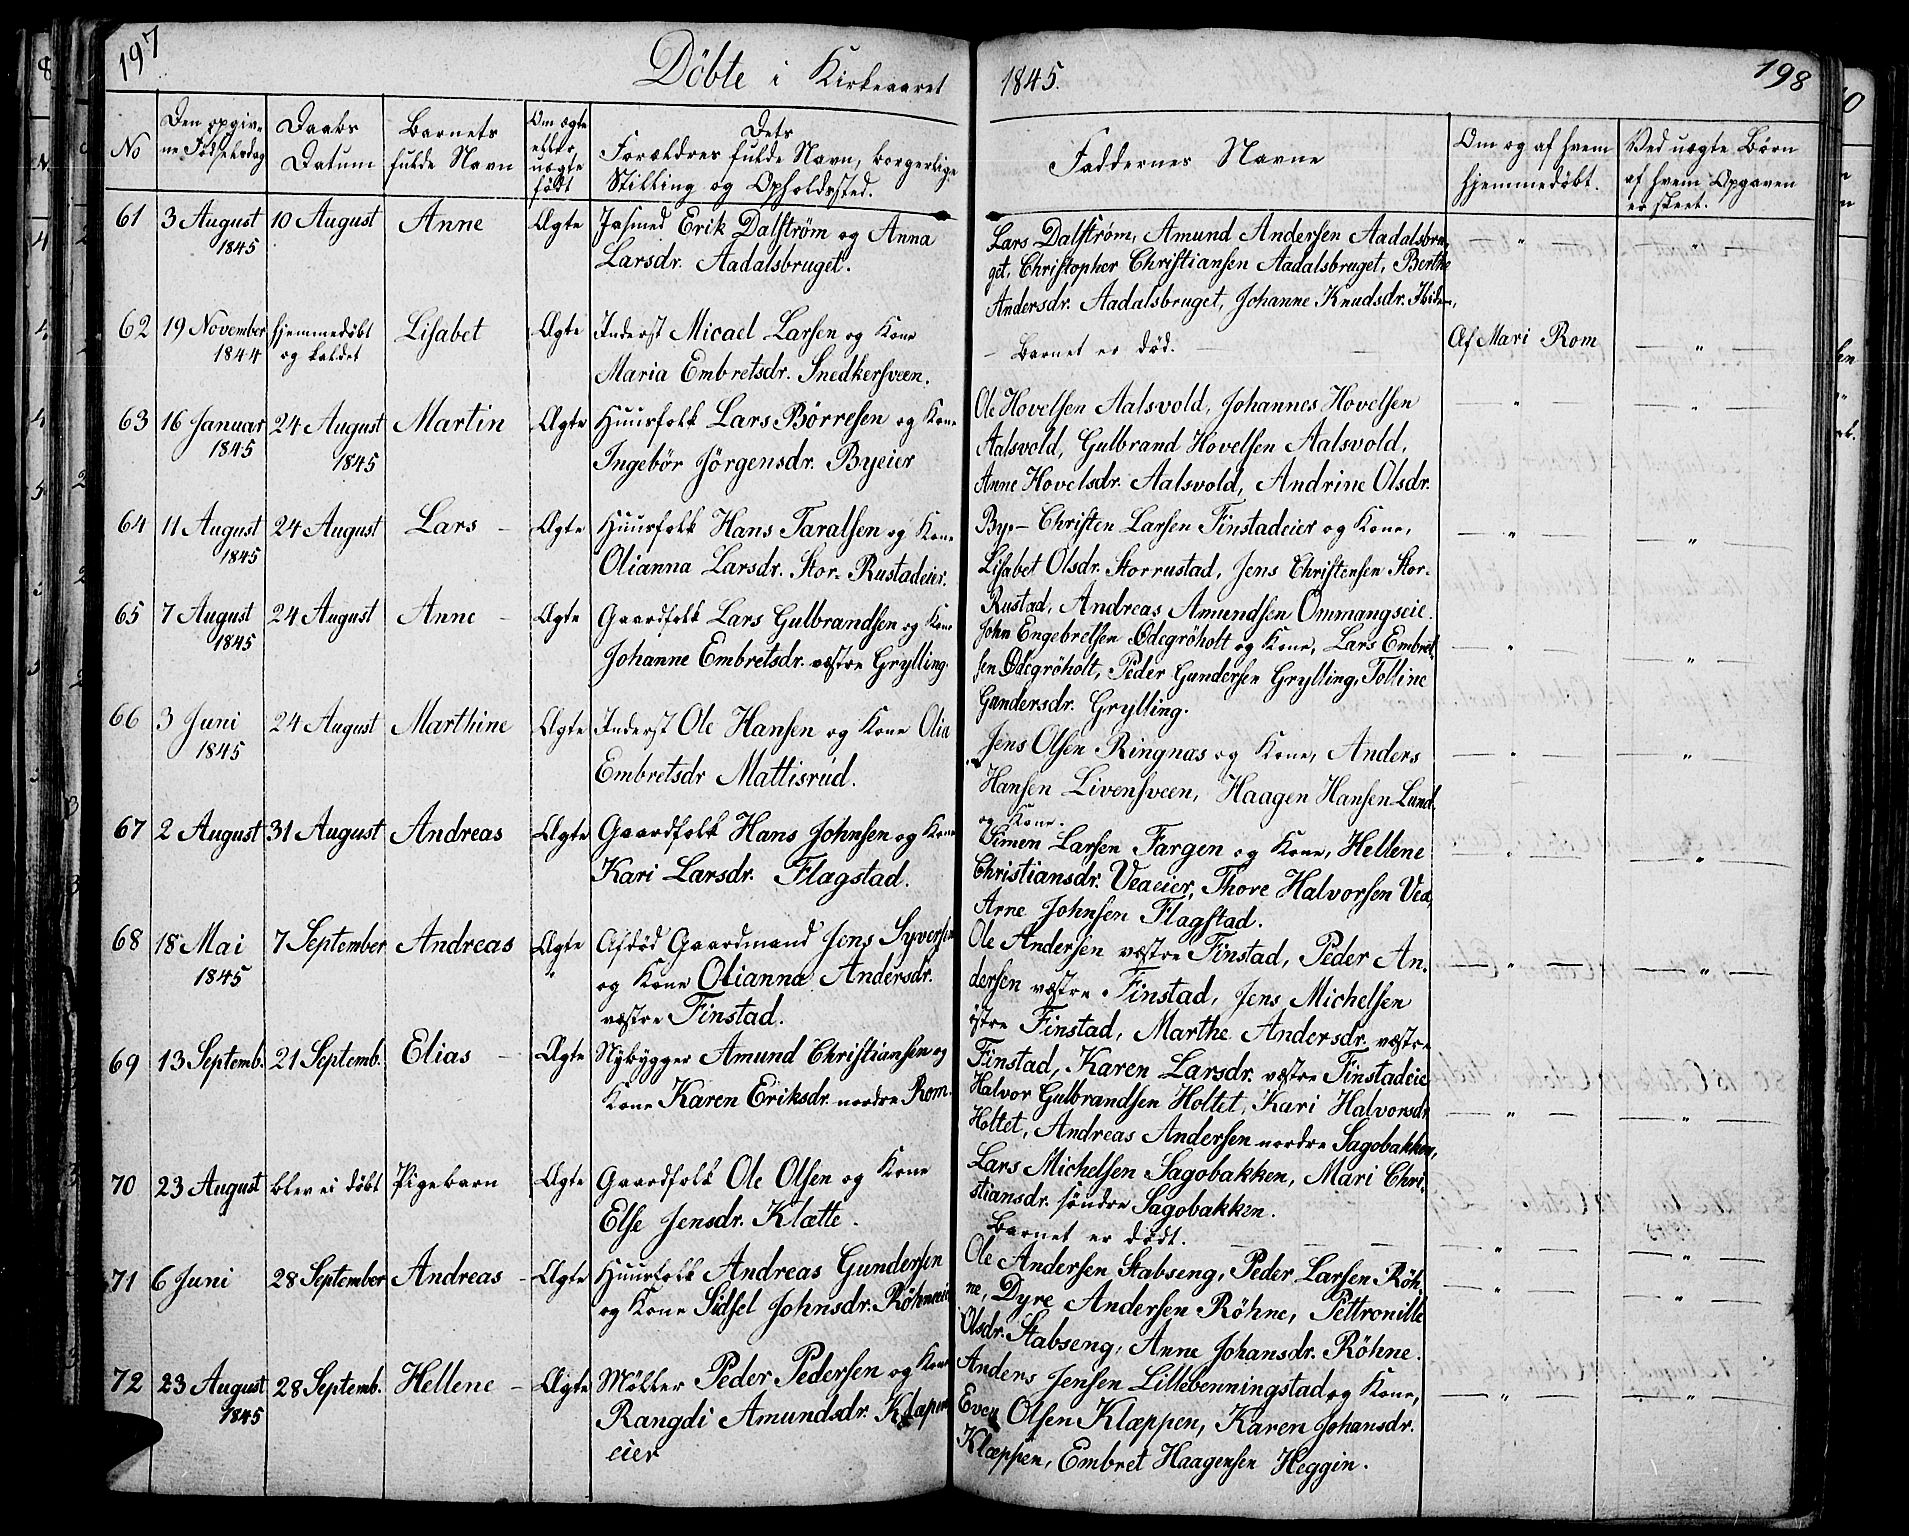 197
Döbte i Kirkeaaret
1845.
198
No
Den opgiv-
ne Fødselsdag
Daabs
Datum
Barnets
fulde Navn
Om ægte
eller
uægte
født
Dets
Forældres fulde Navn, borgerlige
Stilling og Opholdssted.
Faddernes Navne
Om og af hvem
hjemmedøbt.
Ved uægte Børn
af hvem Opgaven
er skeet.
61 3 August 10 August Anne Ægte Erik Dalström og Anna
1845
Larsdr. Aadalsbruget.
Lars Dalström, Amund Andersen Aadalsbru-
get, Christopher Christiansen Aadalsbruget, Berthe
Andersdr. Aadalsbruget, Johanne Knudsdr. Ibidem,
62 19 November hjemmedøbt Lisabet Ægte Inderst Micael Larsen og Kone
1844 og kaldet
Maria Embretsdr. Snedkersveen.
— Barnet er død. —
Af Mari Rom — " —
63 16 Januar 24 August Martin Ægte Huusfolk Lars Börresen og Kone
1845 1845
Ingebör Jörgensdr. Byeier
Ole Hovelsen Aalsvold, Johannes Hovelsen
Aalsvold, Gulbrand Hovelsen Aalsvold,
Anne Hovelsdr. Aalsvold, Andrine Olsdr.
By. —
64 11 August 24 August Lars — Ægte Huusfolk Hans Taralsen og Kone
1845
Olianna Larsdr. Stor-Rustadeier.
Christen Larsen Finstadeier og Kone,
Lisabet Olsdr. Storrustad, Jens Christensen Stor-
Rustad, Andreas Amundsen Ommangseie.
65 7 August 24 August Anne — Ægte Gaardfolk Lars Gulbrandsen og Kone
1845
Johanne Embretsdr. vestre Grylling.
John Engebretsen Ödegröholt og Kone, Lars Embret-
sen Ödegröholt, Peder Gundersen Grylling, Tolline
Gundersdr. Grylling.
66 3 Juni 24 August Marthine Ægte Inderst Ole Hansen og Kone Olia
1845
Embretsdr Mattisrud.
Jens Olsen Ringnæs og Kone, Anders
Hansen Livensveen, Haagen Hansen Lund
og Kone.
67 2 August 31 August Andreas Ægte Gaardfolk Hans Johnsen og Kone
Kari Larsdr. Flagstad.
Simen Larsen Fargen og Kone, Hellene
Christiansdr. Veaeier, Thore Halvorsen Vea,
Arne Johnsen Flagstad.
68 18 Mai 7 September Andreas Ægte Afdöd Gaardmand Jens Syversen
1845 "
og Kone Olianna Andersdr.
vestre Finstad.
Ole Andersen vestre Finstad, Peder An-
dersen vestre Finstad, Jens Michelsen
östre Finstad, Marthe Andersdr. vestre
Finstad, Karen Larsdr. vestre Finstadeie
69 13 Septemb. 21 Septemb. Elias — Ægte Nybygger Amund Christiansen og
Kone Karen Eriksdr. nordre Rom.
Halvor Gulbrandsen Holtet, Kari Halvorsdr
Holtet, Andreas Andersen nordre Sagobakken,
Lars Michelsen Sagobakken, Mari Chri-
stiansdr. söndre Sagobakken.
70 23 August blev ei döbt Pigebarn Ægte Gaardfolk Ole Olsen og Kone
Else Jensdr. Klætte.
Barnet er dödt. —
71 6 Juni 28 September Andreas — Ægte Huusfolk Andreas Gundersen
og Kone Sidsel Johnsdr. Röhneeie
Ole Andersen Stabseng, Peder Larsen Röh-
ne, Dyre Andersen Röhne, Pettronille
Olsdr. Stabseng, Anne Johansdr. Röhne.
72 23 August 28 Septemb. Hellene — Ægte Møller Peder Pedersen og Kone
1845
Rangdi Amundsdr. Klæpen
eier
Anders Jensen Lillebenningstad og Kone,
Even Olsen Klæppen, Karen Johansdr.
Klæppen, Embret Haagensen Heggin.